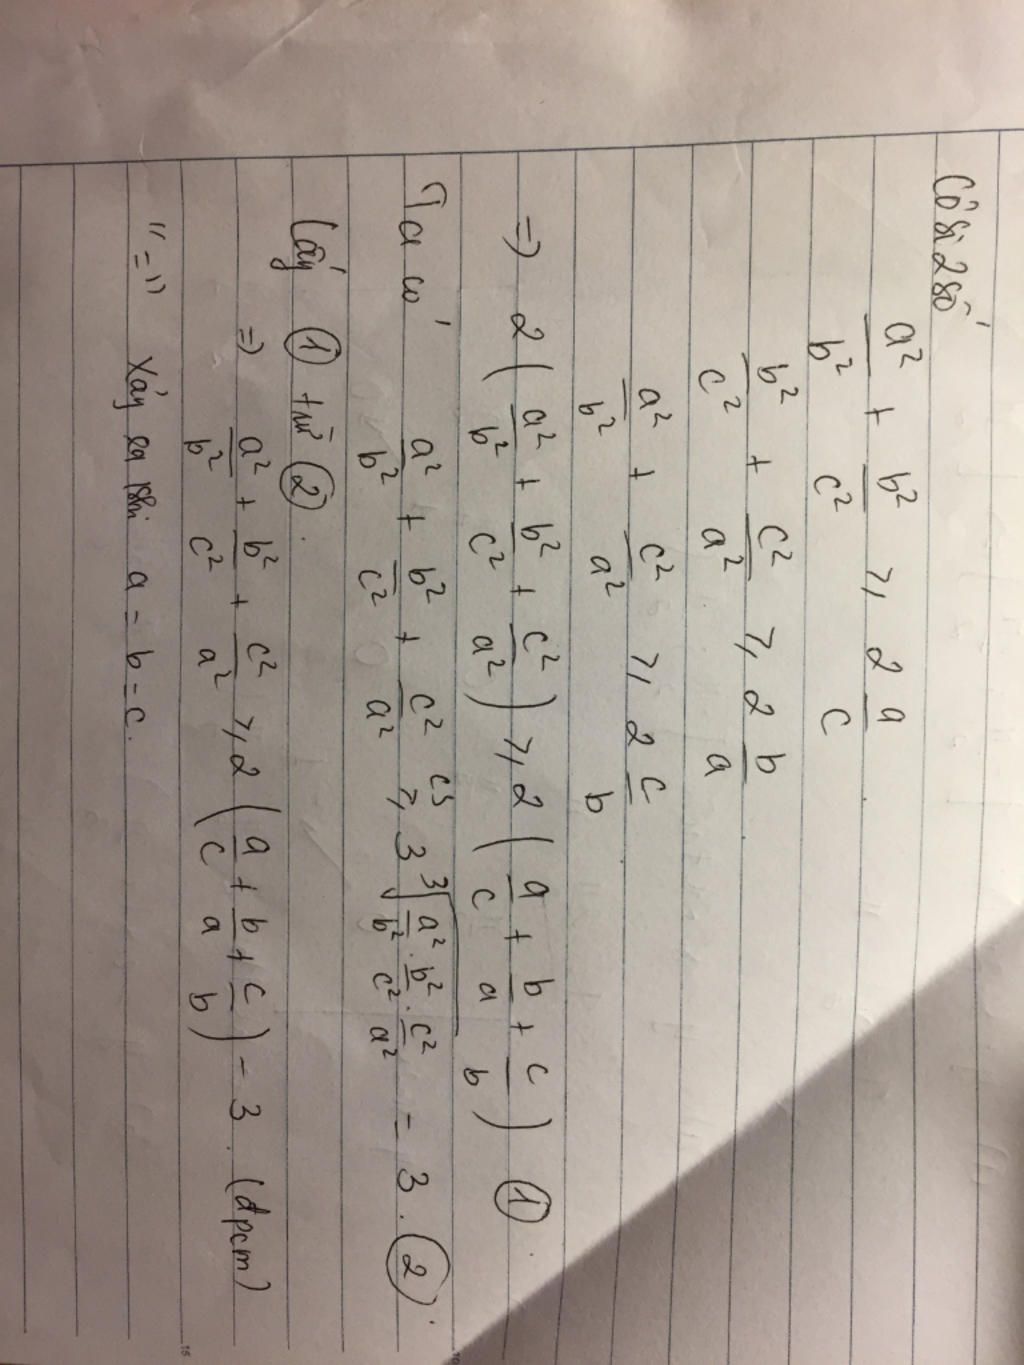 Cô si 2 số
a²/b² + b²/c² ≥ 2 a/c.
b²/c² + c²/a² ≥ 2 b/a
a²/b² + c²/a² ≥ 2 c/b
=> 2(a²/b² + b²/c² + c²/a²) ≥ 2(a/c + b/a + c/b) ①.
Ta có a²/b² + b²/c² + c²/a² ≥ 3 ∛(a²/b² . b²/c² . c²/a²) = 3. ②.
Lấy ① trừ ②.
=> a²/b² + b²/c² + c²/a² ≥ 2(a/c + b/a + c/b) - 3. (đpcm)
"=" xảy ra khi a = b = c.